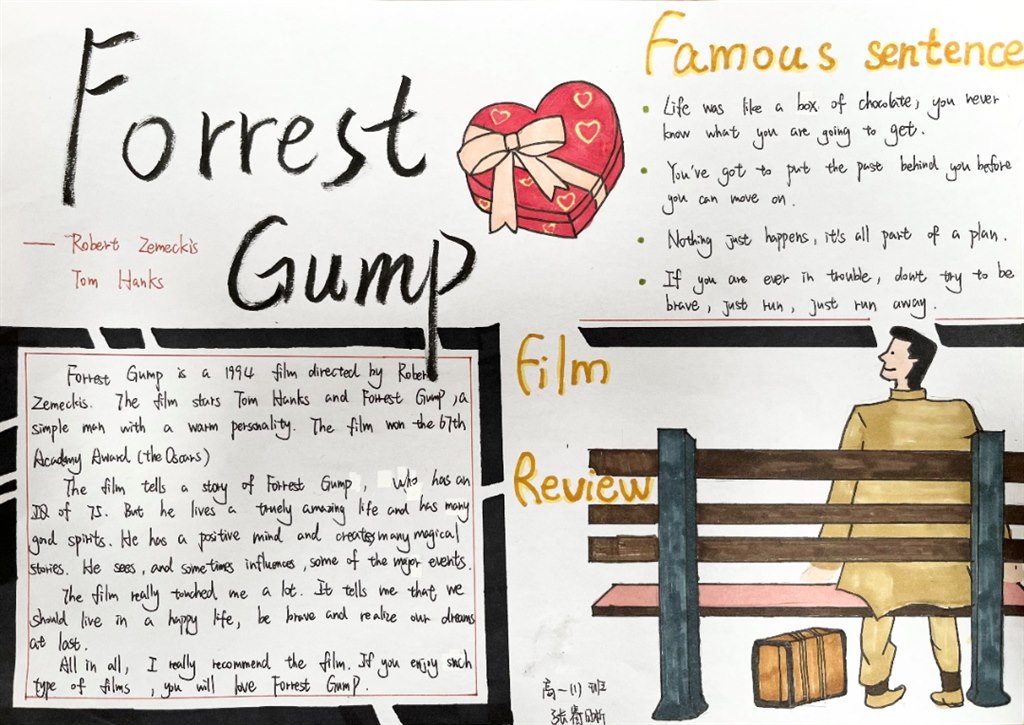 Forrest
Gump
— Robert Zemeckis
Tom Hanks
Famous sentence
Life was like a box of chocolate, you never
know what you are going to get.
You've got to put the past behind you before
you can move on.
Nothing just happens, it's all part of a plan.
If you are ever in trouble, don't try to be
brave, just run, just run away.
Film
Review
Forrest Gump is a 1994 film directed by Robert
Zemeckis. The film stars Tom Hanks and Forrest Gump, a
simple man with a warm personality. The film won the 67th
Academy Award (the Oscars)
The film tells a story of Forrest Gump, who has an
IQ of 75. But he lives a truely amazing life and has many
good spirits. He has a positive mind and creates many magical
stories. He sees, and sometimes influences, some of the major events.
The film really touched me a lot. It tells me that we
should live in a happy life, be brave and realize our dreams
at last.
All in all, I really recommend the film. If you enjoy such
type of films, you will love Forrest Gump.
高一(1)班